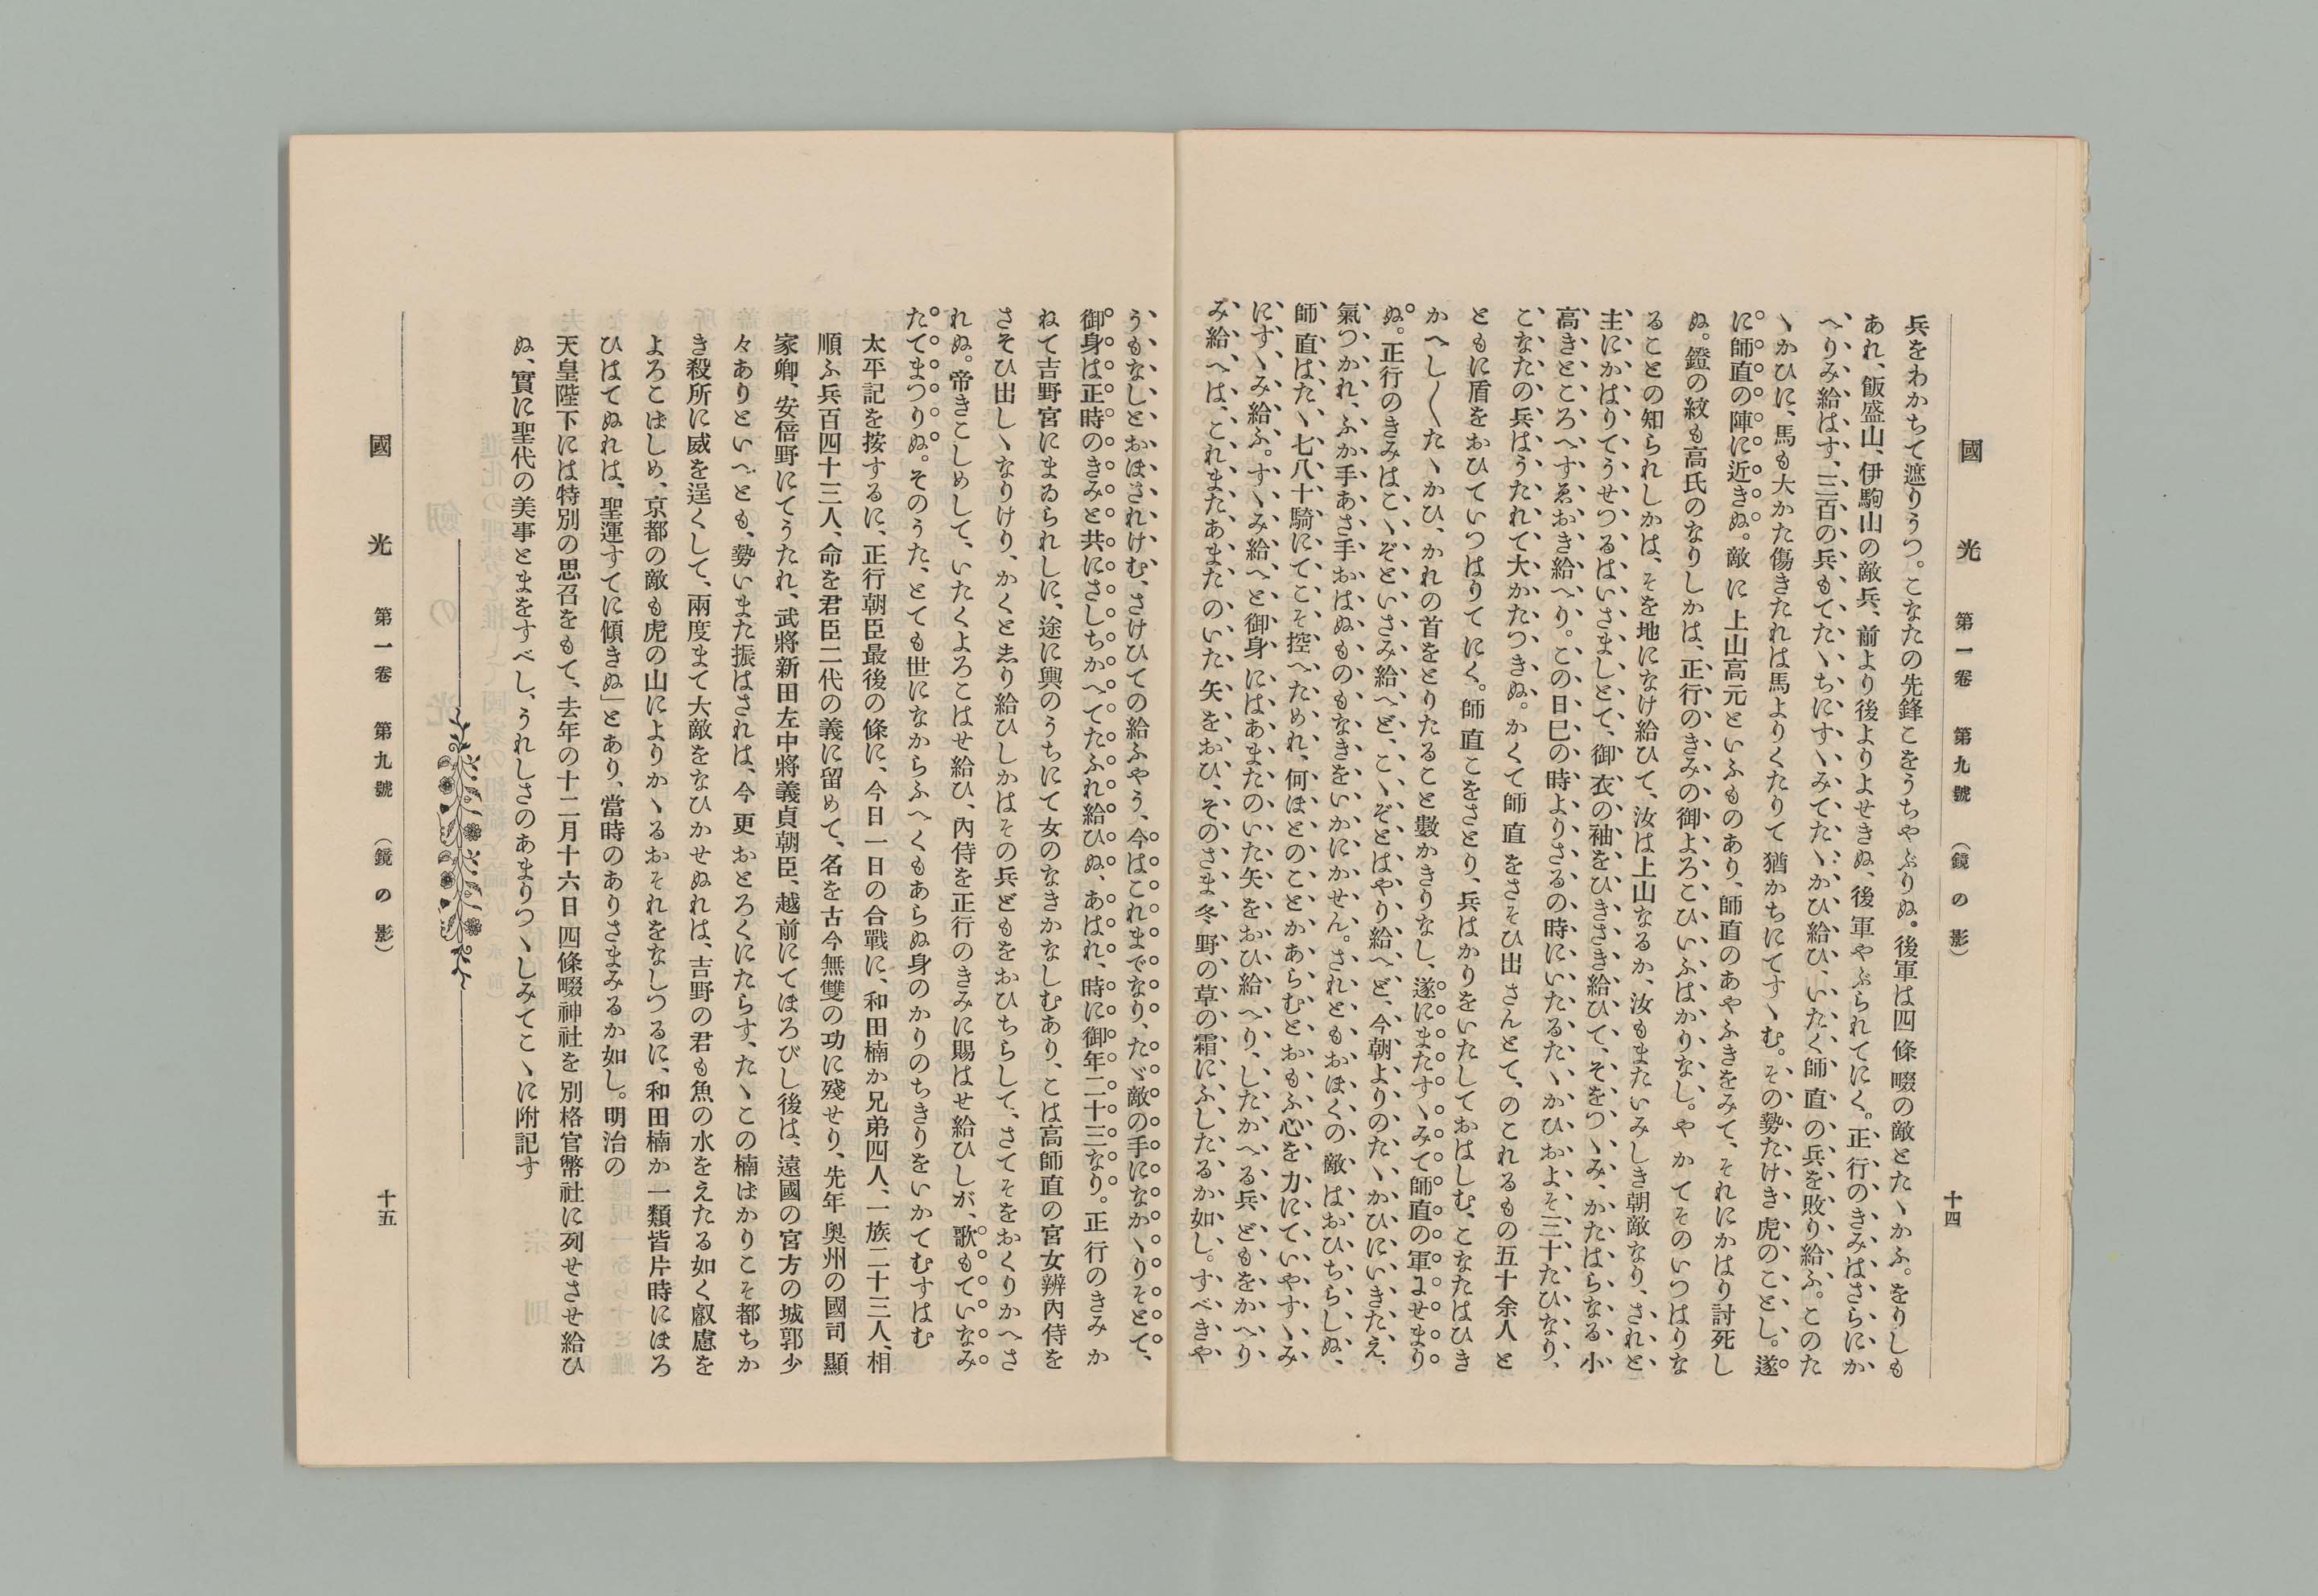 國光 第一卷 第九號 （鏡の影） 十四
兵をわかちて遮りうつ。こなたの先鋒こをうちやぶりぬ。後軍は四條畷の敵とたゝかふ。をりしも
あれ、飯盛山、伊駒山の敵兵、前より後よりよせきぬ、後軍やぶられてにく。正行のきみはさらにか
へりみ給はす、三百の兵もてたゝちにすゝみてたゝかひ給ひ、いたく師直の兵を敗り給ふ。このた
ゝかひに、馬も大かた傷きたれは馬よりくたりて猶かちにてすゝむ。その勢たけき虎のことし。遂
に師直の陣に近きぬ。敵に上山高元といふものあり、師直のあやふきをみて、それにかはり討死し
ぬ。鐙の紋も高氏のなりしかは、正行のきみの御よろこひいふはかりなし。やかてそのいつはりな
ることの知られしかは、そを地になけ給ひて、汝は上山なるか、汝もまたいみしき朝敵なり、されと
主にかはりてうせつるはいさましとて、御衣の袖をひきさき給ひて、そをつゝみ、かたはらなる小
高きところへすゑおき給へり。この日巳の時よりさるの時にいたるたゝかひおよそ三十たひなり、
こなたの兵はうたれて大かたつきぬ。かくて師直をさそひ出さんとて、のこれるもの五十余人と
ともに盾をおひていつはりてにく。師直こをさとり、兵はかりをいたしておはしむ、こなたはひき
かへし〱たゝかひ、かれの首をとりたること數かきりなし、遂にまたすゝみて師直の軍にせまり
ぬ。正行のきみはこゝぞといさみ給へど、こゝぞとはやり給へど、今朝よりのたゝかひにいきたえ、
氣つかれ、ふか手あさ手おはぬものもなきをいかにかせん。されともおほくの敵はおひちらしぬ、
師直はたゝ七八十騎にてこそ控へためれ、何ほとのことかあらむとおもふ心を力にていやすゝみ
にすゝみ給ふ。すゝみ給へと御身にはあまたのいた矢をおひ給へり、したかへる兵どもをかへり
み給へは、これまたあまたのいた矢をおひ、そのさま冬野の草の霜にふしたるか如し。すべきや
うもなしとおほされけむ、さけひての給ふやう、今はこれまでなり、たゞ敵の手になかゝりそとて、
御身は正時のきみと共にさしちかへてたふれ給ひぬ、あはれ、時に御年二十三なり。正行のきみか
ねて吉野宮にまゐられしに、途に輿のうちにて女のなきかなしむあり、こは高師直の宮女辨內侍を
さそひ出しゝなりけり、かくと志り給ひしかはその兵どもをおひちらして、さてそをおくりかへさ
れぬ。帝きこしめして、いたくよろこはせ給ひ、內侍を正行のきみに賜はせ給ひしが、歌もていなみ
たてまつりぬ。そのうた、とても世になからふへくもあらぬ身のかりのちきりをいかてむすはむ
太平記を按するに、正行朝臣最後の條に、今日一日の合戰に、和田楠か兄弟四人、一族二十三人、相
順ふ兵百四十三人、命を君臣二代の義に留めて、名を古今無雙の功に殘せり、先年奥州の國司顯
家卿、安倍野にてうたれ、武將新田左中將義貞朝臣、越前にてほろびし後は、遠國の宮方の城郭少
々ありといへども、勢いまた振はされは、今更おとろくにたらす、たゝこの楠はかりこそ都ちか
き殺所に威を逞くして、兩度まて大敵をなひかせぬれは、吉野の君も魚の水をえたる如く叡慮を
よろこはしめ、京都の敵も虎の山によりかゝるおそれをなしつるに、和田楠か一類皆片時にほろ
ひはてぬれは、聖運すてに傾きぬ」とあり、當時のありさまみるか如し。明治の
天皇陛下には特別の思召をもて、去年の十二月十六日四條畷神社を別格官幣社に列せさせ給ひ
ぬ、實に聖代の美事とまをすべし、うれしさのあまりつゝしみてこゝに附記す
國光 第一卷 第九號 （鏡の影） 十五